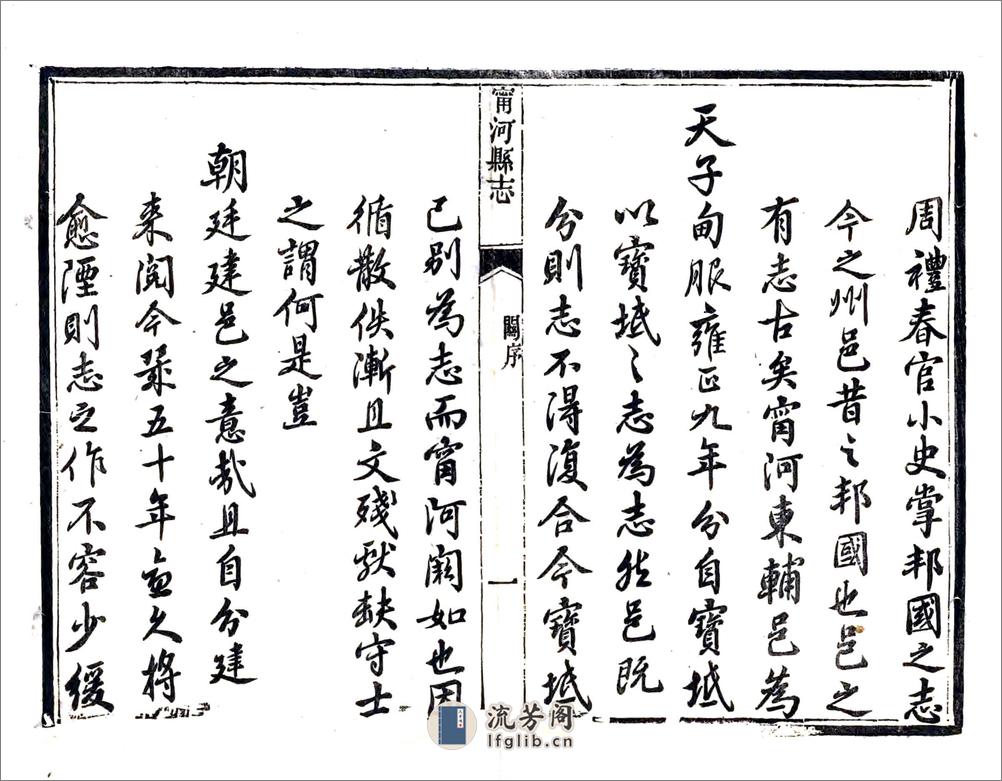 周禮春官小史掌邦國之志
今之州邑昔之邦國也邑之
有志古矣甯河東輔邑為
天子甸服雍正九年分自寶坻
以寶坻之志為志然邑既
分則志不得復合今寶坻
甯河縣志
關序
一
已別為志而甯河闕如也因
循散佚漸且文殘獻缺守土
之謂何是豈
朝廷建邑之意哉且自分建
来閱今幾五十年愈久將
愈湮則志之作不容少緩
流芳阁
lfglib.cn